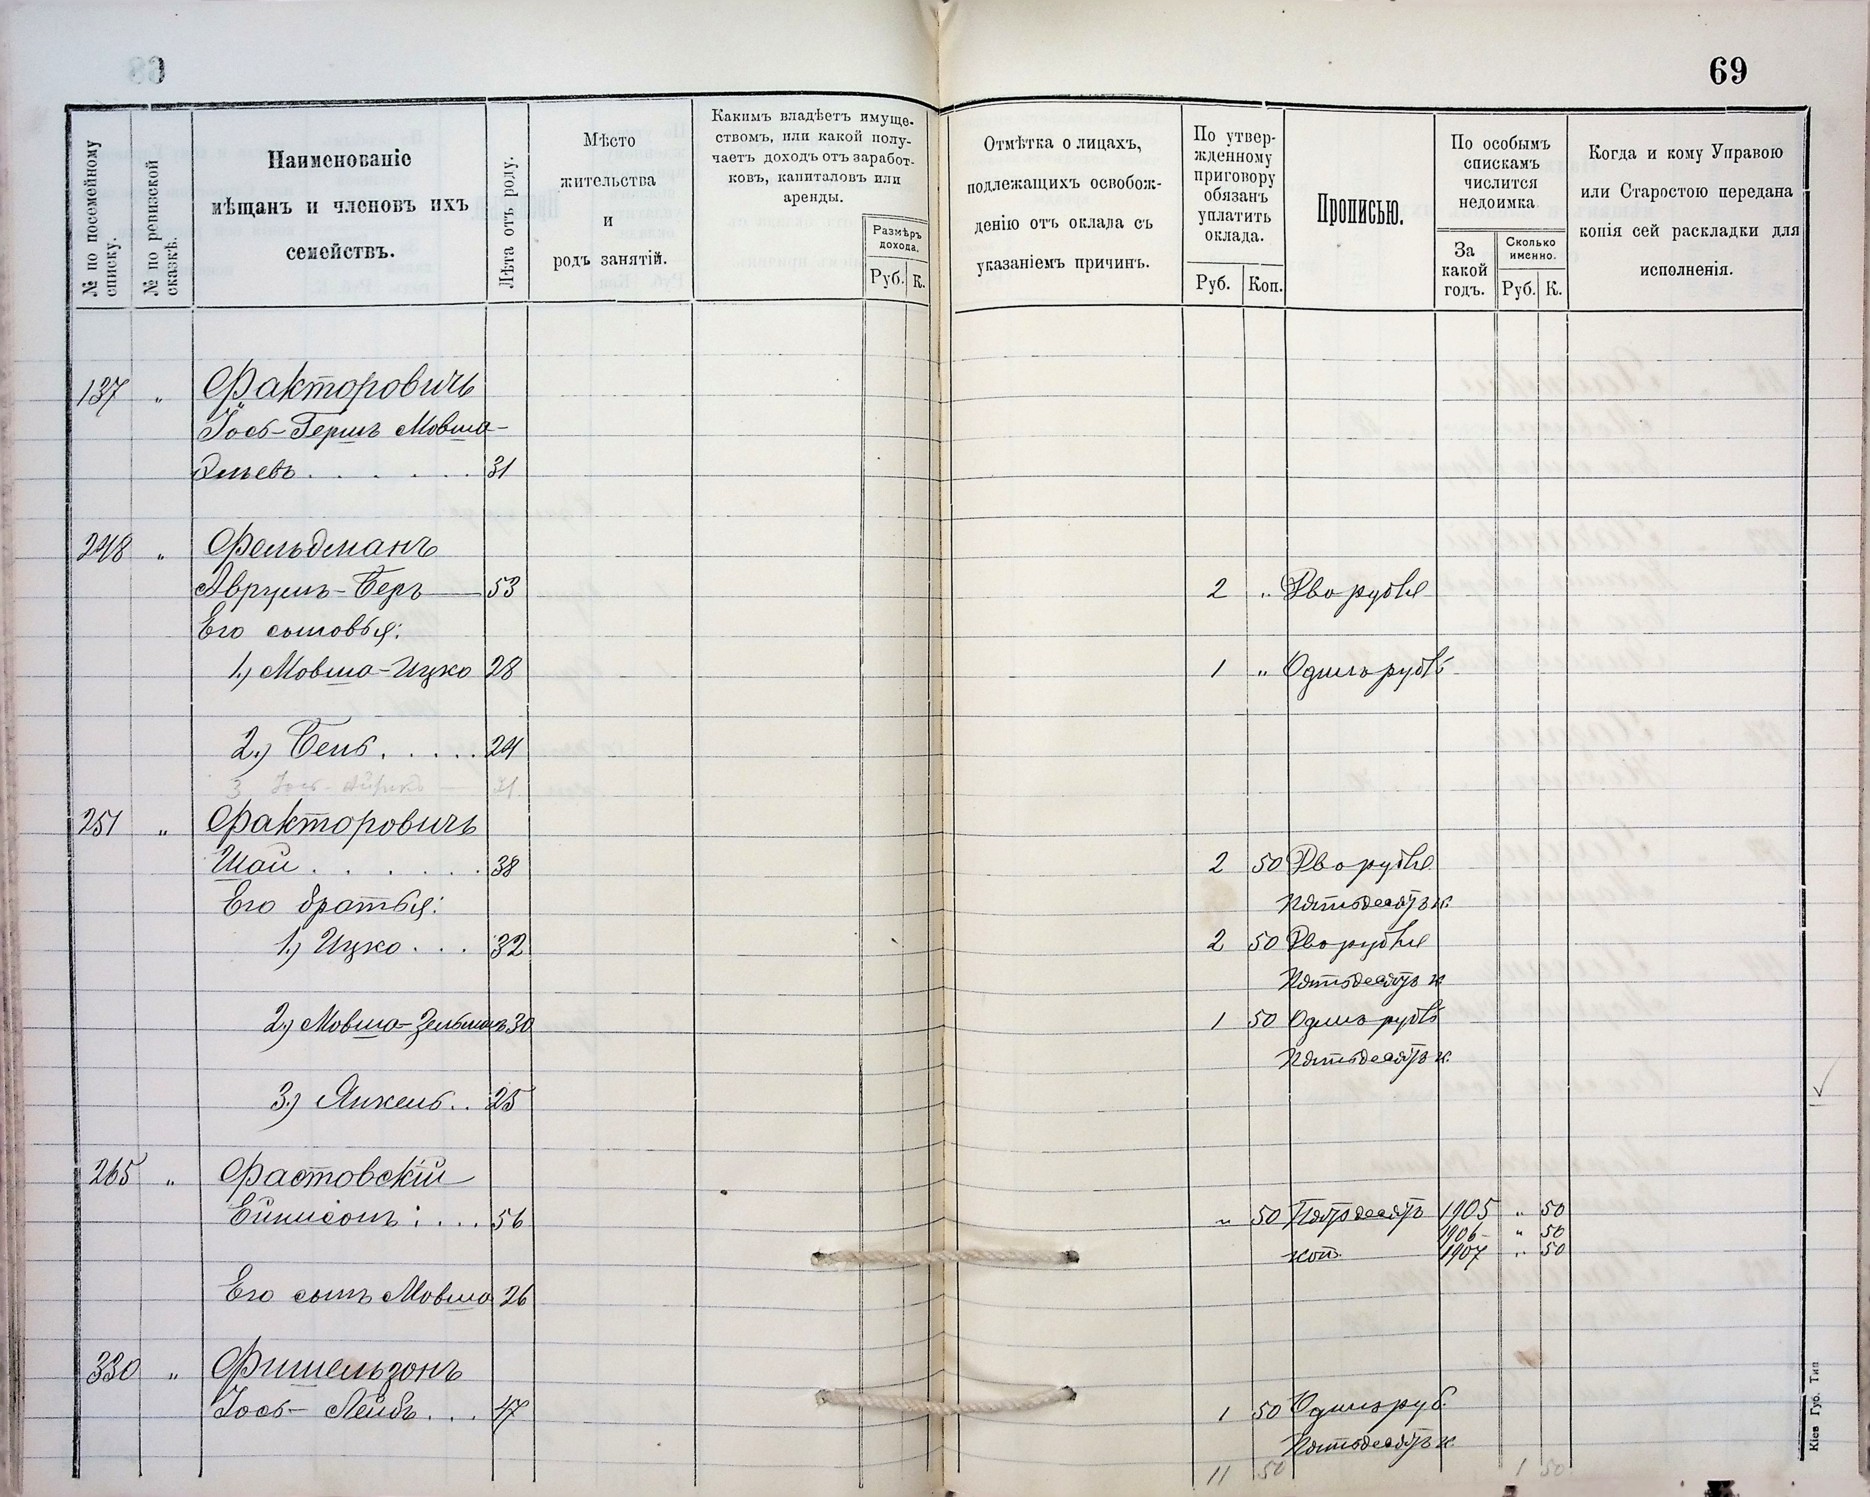 69
№ по посемейному списку.
№ по ревизской сказкѣ.
Наименованіе
мѣщанъ и членовъ ихъ
семействъ.
Лѣта отъ роду.
Мѣсто
жительства
и
родъ занятій.
Какимъ владѣетъ имуще-
ствомъ, или какой полу-
чаетъ доходъ отъ заработ-
ковъ, капиталовъ или
аренды.
Размѣръ
дохода.
Руб. К.
Отмѣтка о лицахъ,
подлежащихъ освобож-
денію отъ оклада съ
указаніемъ причинъ.
По утвер-
жденному
приговору
обязанъ
уплатить
оклада.
Руб. Коп.
Прописью.
По особымъ
спискамъ
числится
недоимка
За
какой
годъ.
Сколько
именно.
Руб. К.
Когда и кому Управою
или Старостою передана
копія сей раскладки для
исполненія.
137 „ Факторовичъ
Іось-Гершъ Мовша-
Эльевъ . . . . . . 31
248 „ Фельдманъ
Аврумъ-Беръ — 53 2 „ Два рубля
Его сыновья:
1.) Мовша-Ицко 28 1 „ Одинъ рубль
2.) Бень . . . . . 24
3 Іось- 21
251 „ Факторовичъ
Шая . . . . . . 38 2 50 Два рубля
Его братья: Пятьдесятъ к.
1.) Ицко . . . 32 2 50 Два рубля
Пятьдесятъ к
2.) Мовша-Зельманъ 30 1 50 Одинъ рубль
Пятьдесятъ к.
3.) Янкель . . 25
265 „ Фастовскій
56 „ 50 Пятьдесятъ 1905 „ 50
1906 „ 50
коп. 1907 „ 50
Его сынъ Мовша 26
330 „ Фишельзонъ
Іось-Лейбъ . . . 47 1 50 Одинъ руб.
Пятьдесятъ к.
11 50 1 50
Кіев Губ. Тип